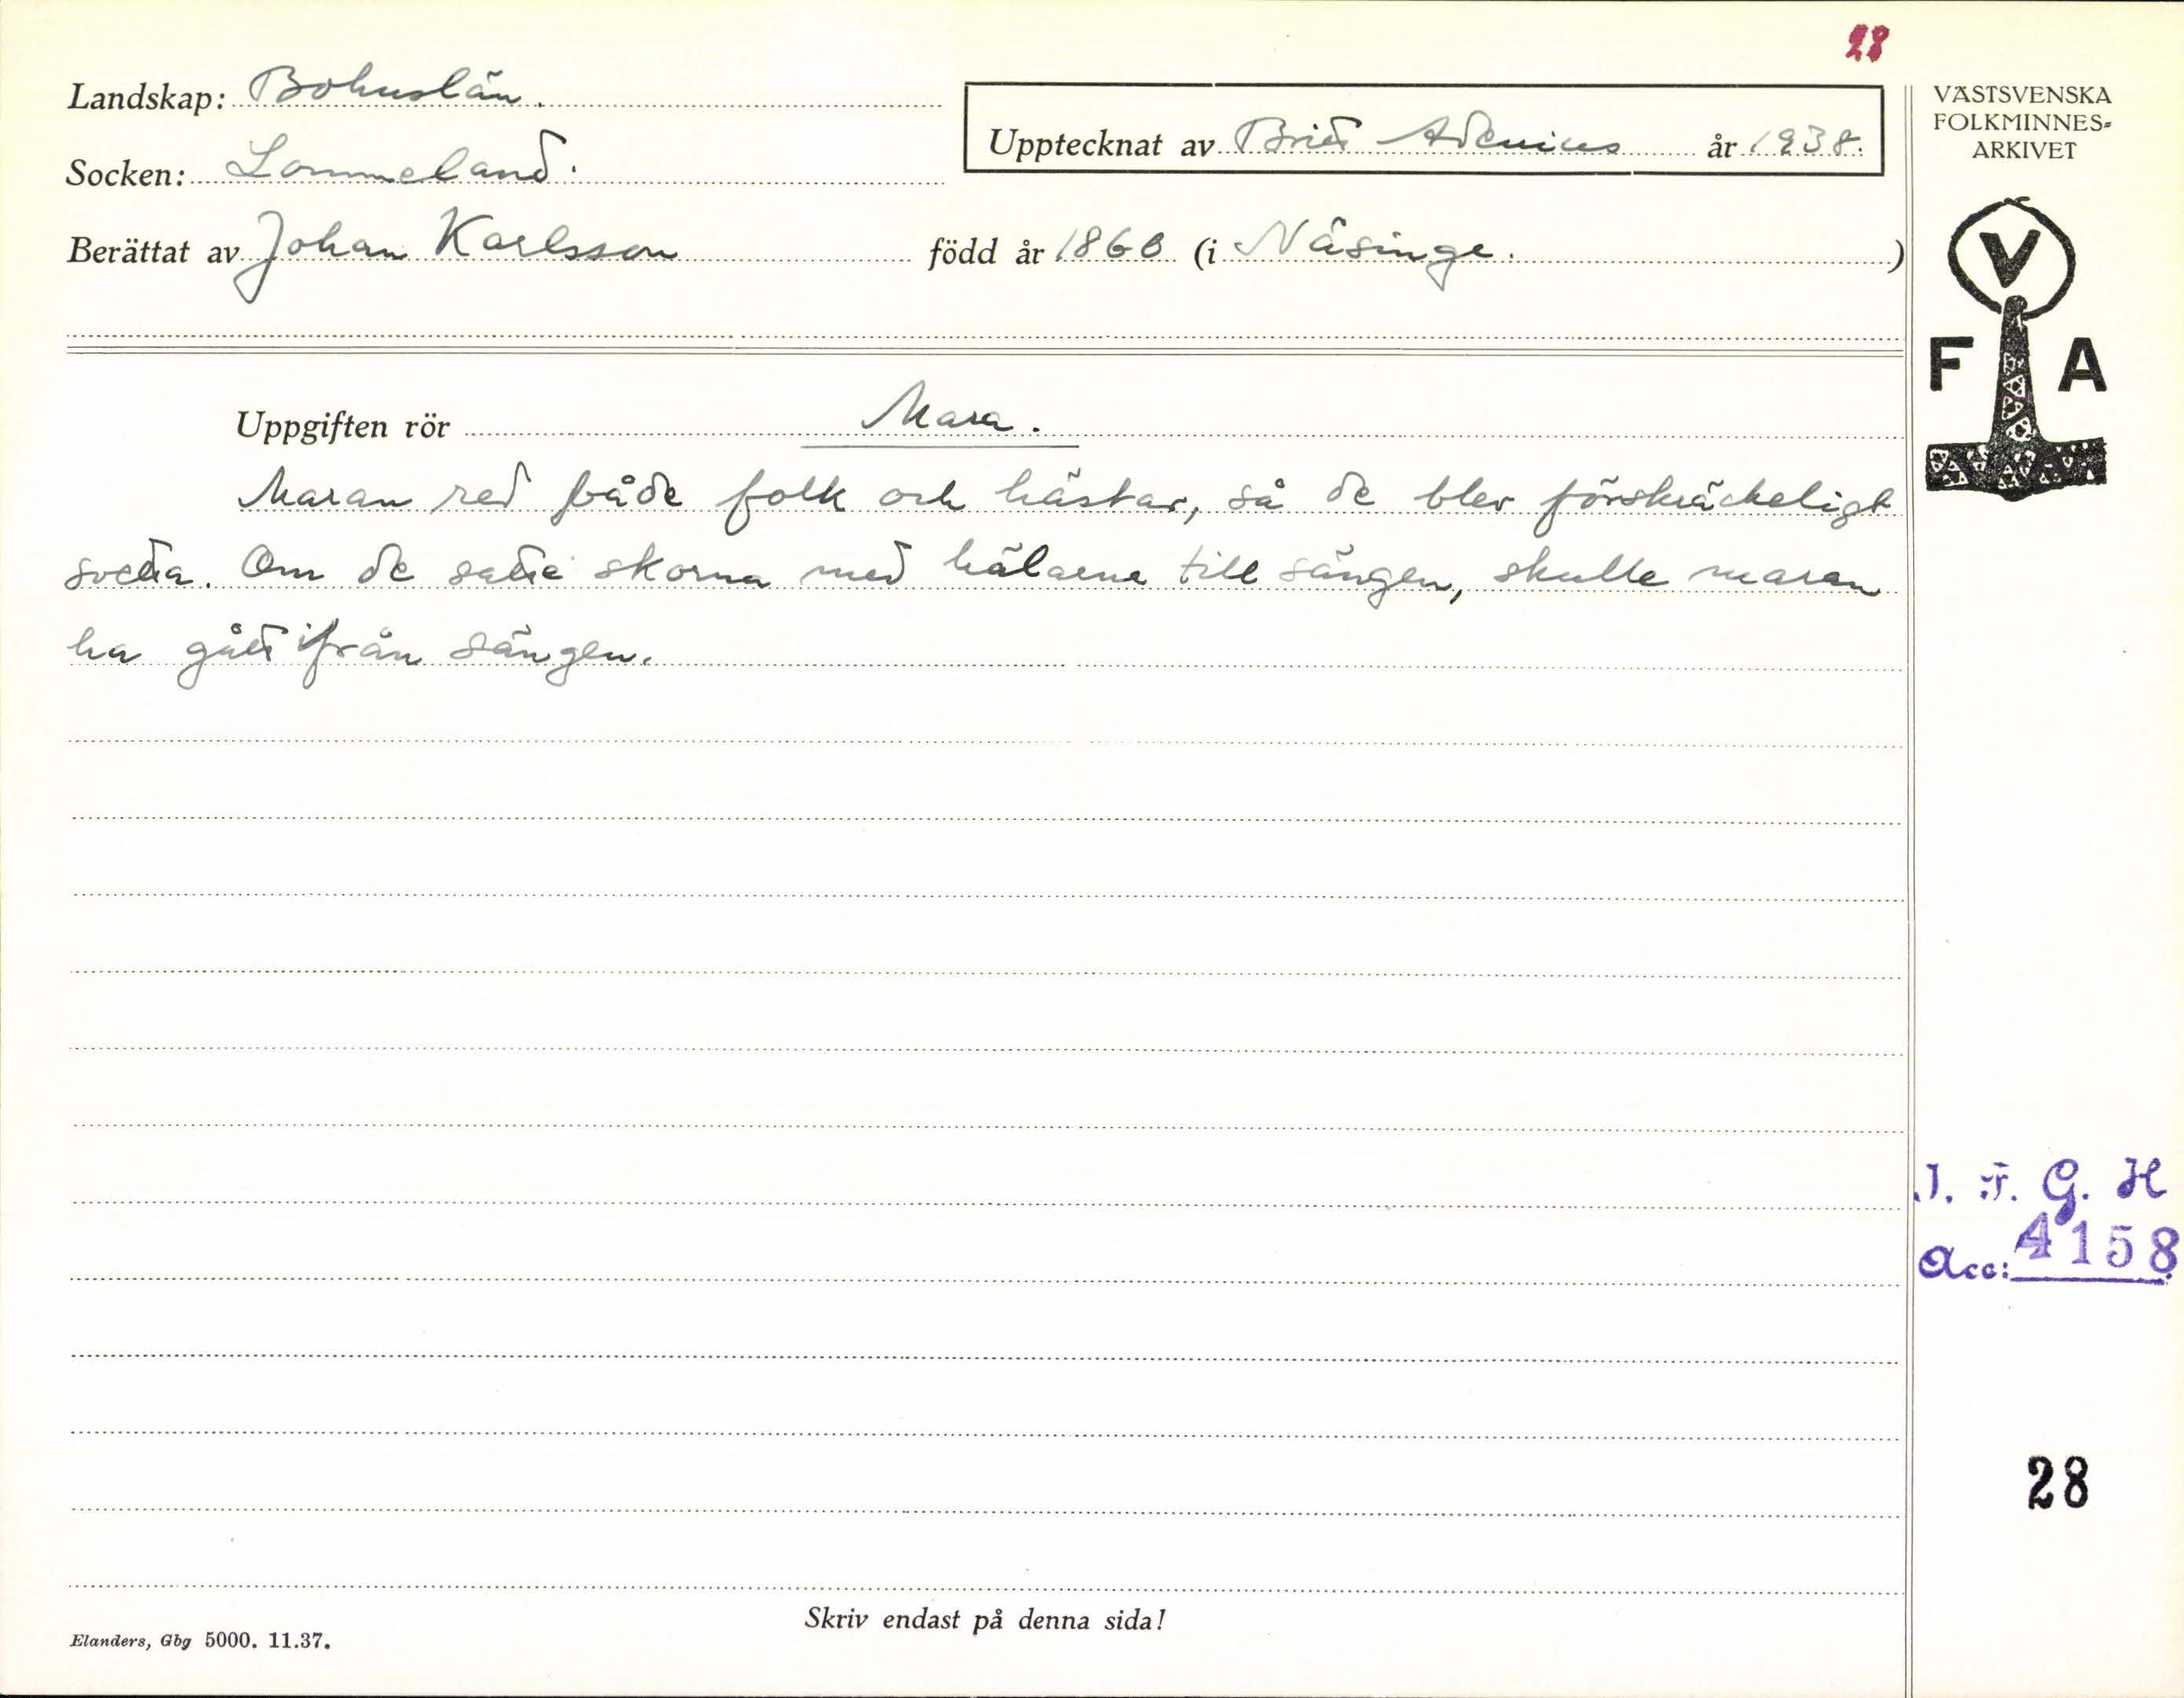 28
Landskap: Bohuslän.
Socken: Lommeland.
Upptecknat av Britt Adenius år 1938.
Berättat av Johan Karlsson född år 1860 (i Näsinge.)
VÄSTSVENSKA
FOLKMINNES-
ARKIVET
V
F A
Uppgiften rör Mara.
Maran red både folk och hästar, så de blev förskräckeligt
svetta. Om de satte skorna med hälarne till sängen, skulle maran
ha gått ifrån sängen.
I. F. G. H
Acc: 4158
28
Skriv endast på denna sida!
Elanders, Gbg 5000. 11.37.